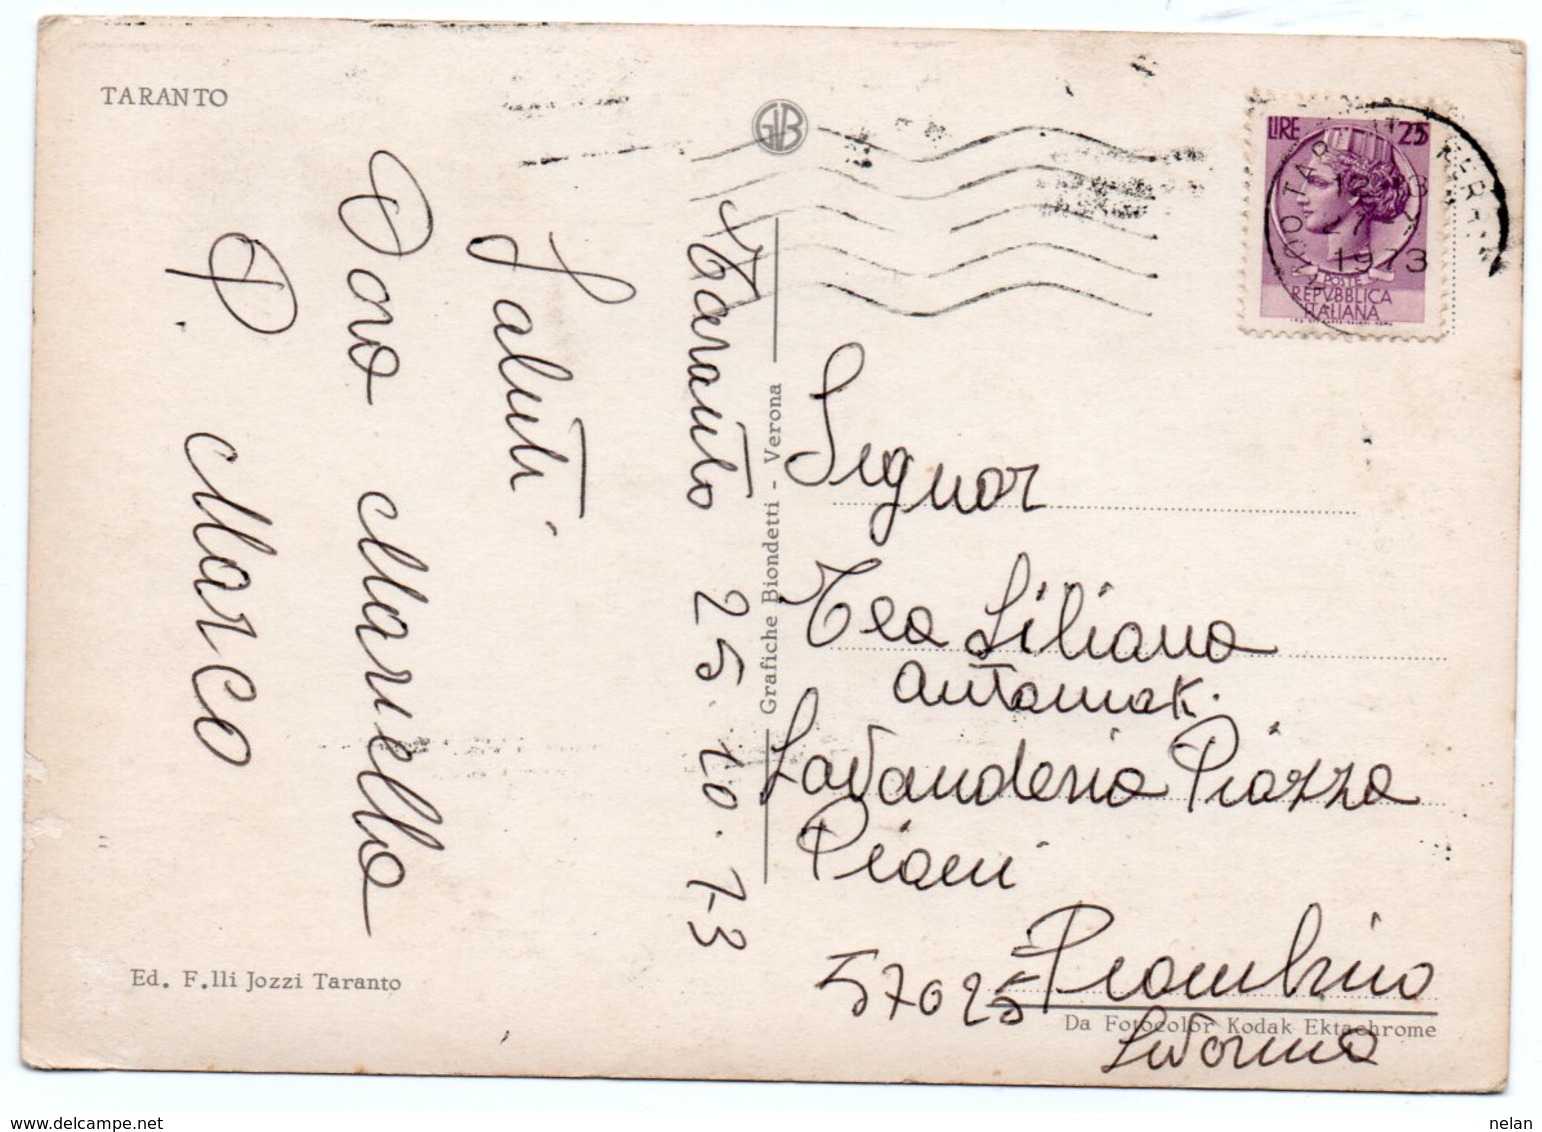 TARANTO
GVB
LIRE 25
27 X
1973
POSTE
REPVBBLICA
ITALIANA
Taranto 25.10.73
Saluti
Marcella
P. Marco
Grafiche Biondetti - Verona
Signor
Tea Liliana
Lavanderia Piazza
Piani
57025 Piombino
Livorno
Ed. F.lli Jozzi Taranto
Da Fotocolor Kodak Ektachrome
www.delcampe.net
nelan